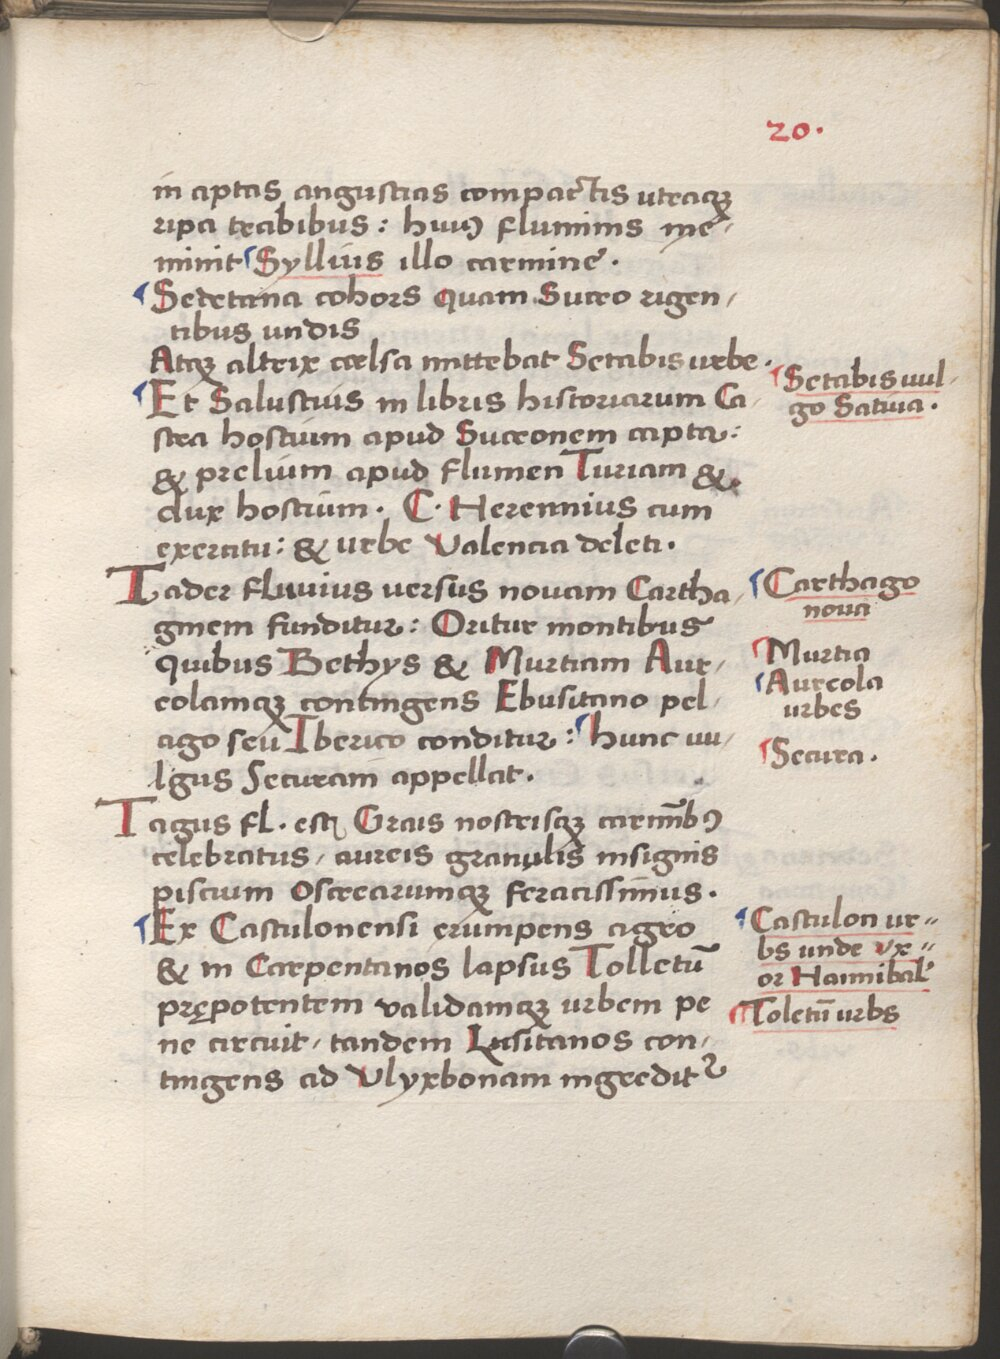 20.
in aptas angustias compactis utraqꝫ
ripa trabibus: huiꝰ fluminis me-
minit Syllius illo carmine.
Sedetana cohors quam Sucro rigen-
tibus undis
Atqꝫ altrix cælsa mittebat Setabis urbe.
Setabis uul-
go Satiua.
Et Salustius in libris historiarum Ca
stra hostium apud Sucronem capta:
& prelium apud flumen Turiam &
dux hostium. C. Herennius cum
exercitu: & urbe Valencia deleti.
Tader fluuius uersus nouam Cartha-
ginem funditur: Oritur montibus
quibus Bethys & Murtiam Aur-
eolamqꝫ contingens Ebusitano pel-
ago seu Iberico conditur: hunc uu-
lgus Securam appellat.
Carthago
noua
Murtia
Aureola
urbes
Secura.
Tagus fl. est Grais nostrisqꝫ carminibꝰ
celebratus, aureis granulis insignis
piscium Ostrearumqꝫ feracissimus.
Ex Castulonensi erumpens agro
& in Carpentanos lapsus Tolletū
prępotentem validamqꝫ urbem pe
ne circuit, tandem Lusitanos con-
tingens ad Vlyxbonam ingredit᷑
Castulon ur-
bs unde vx-
or Hannibal'
Toletū urbs